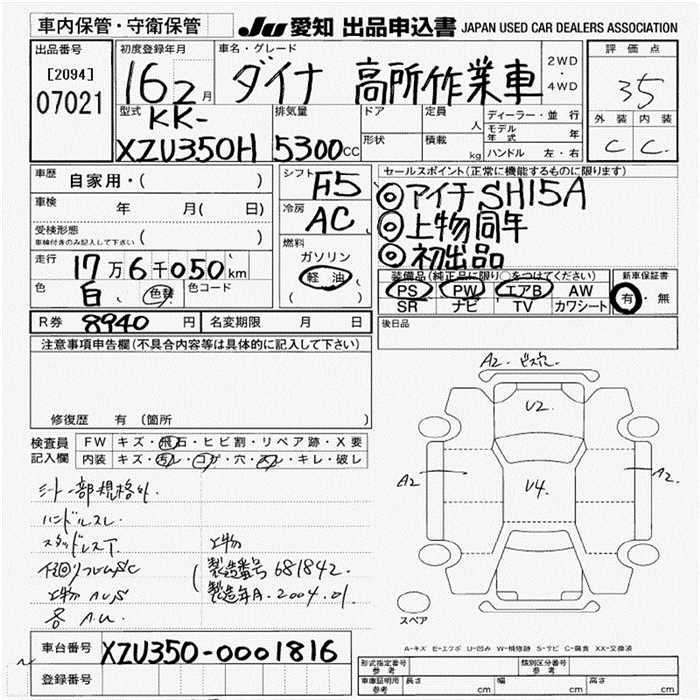 車内保管・守衛保管
JU 愛知 出品申込書 JAPAN USED CAR DEALERS ASSOCIATION
出品番号
[2094]
07021
初度登録年月
16 2月
車名・グレード
ダイナ 高所作業車
2WD
・
4WD
評価点
35
外装 内装
C C.
型式
KK-
XZU350H
排気量
5300cc
ドア
形状
定員
人
積載
kg
ディーラー・並行
モデル年式 年
ハンドル 左・右
車歴 自家用・( )
車検 年 月( 日)
受検形態
車検付きのみ記入して下さい ( )
走行 17万6千050km
色 白 ( 色替 ) 色コード
シフト F5
冷房 AC
燃料
ガソリン
軽油
( )
セールスポイント(正常に機能するものに限ります)
◎アイチSH15A
◎上物同年
◎初出品
装備品(純正品に限り○をつけてください)
PS PW エアB AW
SR ナビ TV カワシート
新車保証書
有・無
R券 8940円 名変期限 月 日
後日品
注意事項申告欄(不具合内容等は具体的に記入して下さい)
修復歴 有 (箇所 )
検査員記入欄
FW キズ・飛石・ヒビ割・リペア跡・X要
内装 キズ・汚レ・コゲ・穴・スレ・キレ・破レ
シート一部規格外.
ハンドルスレ.
スタッドレスT.
上物
製造番号 681842.
製造年月. 2004.01.
上物
各
A2.
U2.
A2
U4.
A2
スペア
A-キズ E-エクボ U-凹み W-補修跡 S-サビ C-腐食 XX-交換済
車台番号 XZU350-0001816
登録番号
形式指定番号
参考
類別区分番号
参考
車庫証明用
参考
長さ cm 幅 cm 高さ cm